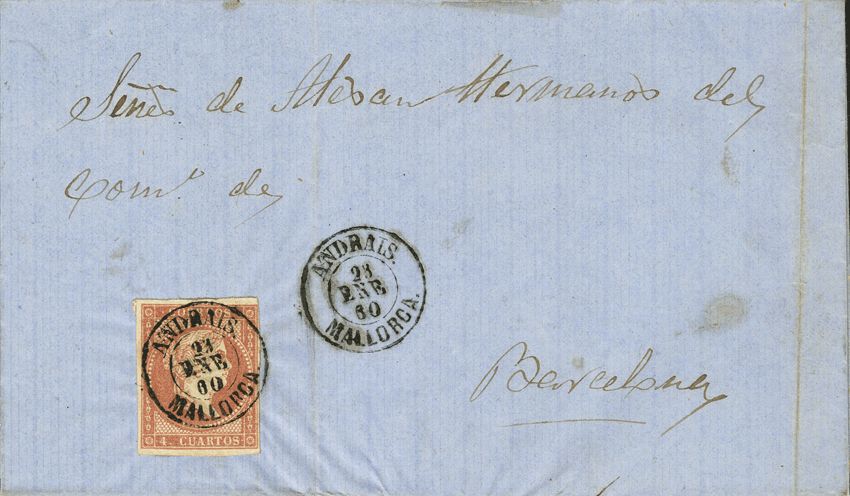 Señrs de Mesan Hermanos del
Comº de
ANDRAIS.
23
ENE
60
MALLORCA.
ANDRAIS.
23
ENE
60
MALLORCA
4. CUARTOS
Barcelona